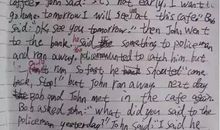 coffee John said: "It's not early, I want to
go home, tomorrow I will see you at this cafe" Bob
Said: "OK, see you tomorrow." then John went
to the bank said something to policeman
and ran away, policeman wanted to catch him but
can't run so fast, he shouted "come
back, Stop!" but John ran away next day
Bob and John met in the cafe again
Bob asked John: "what did you said to the
policeman yesterday?" John said: "I said he